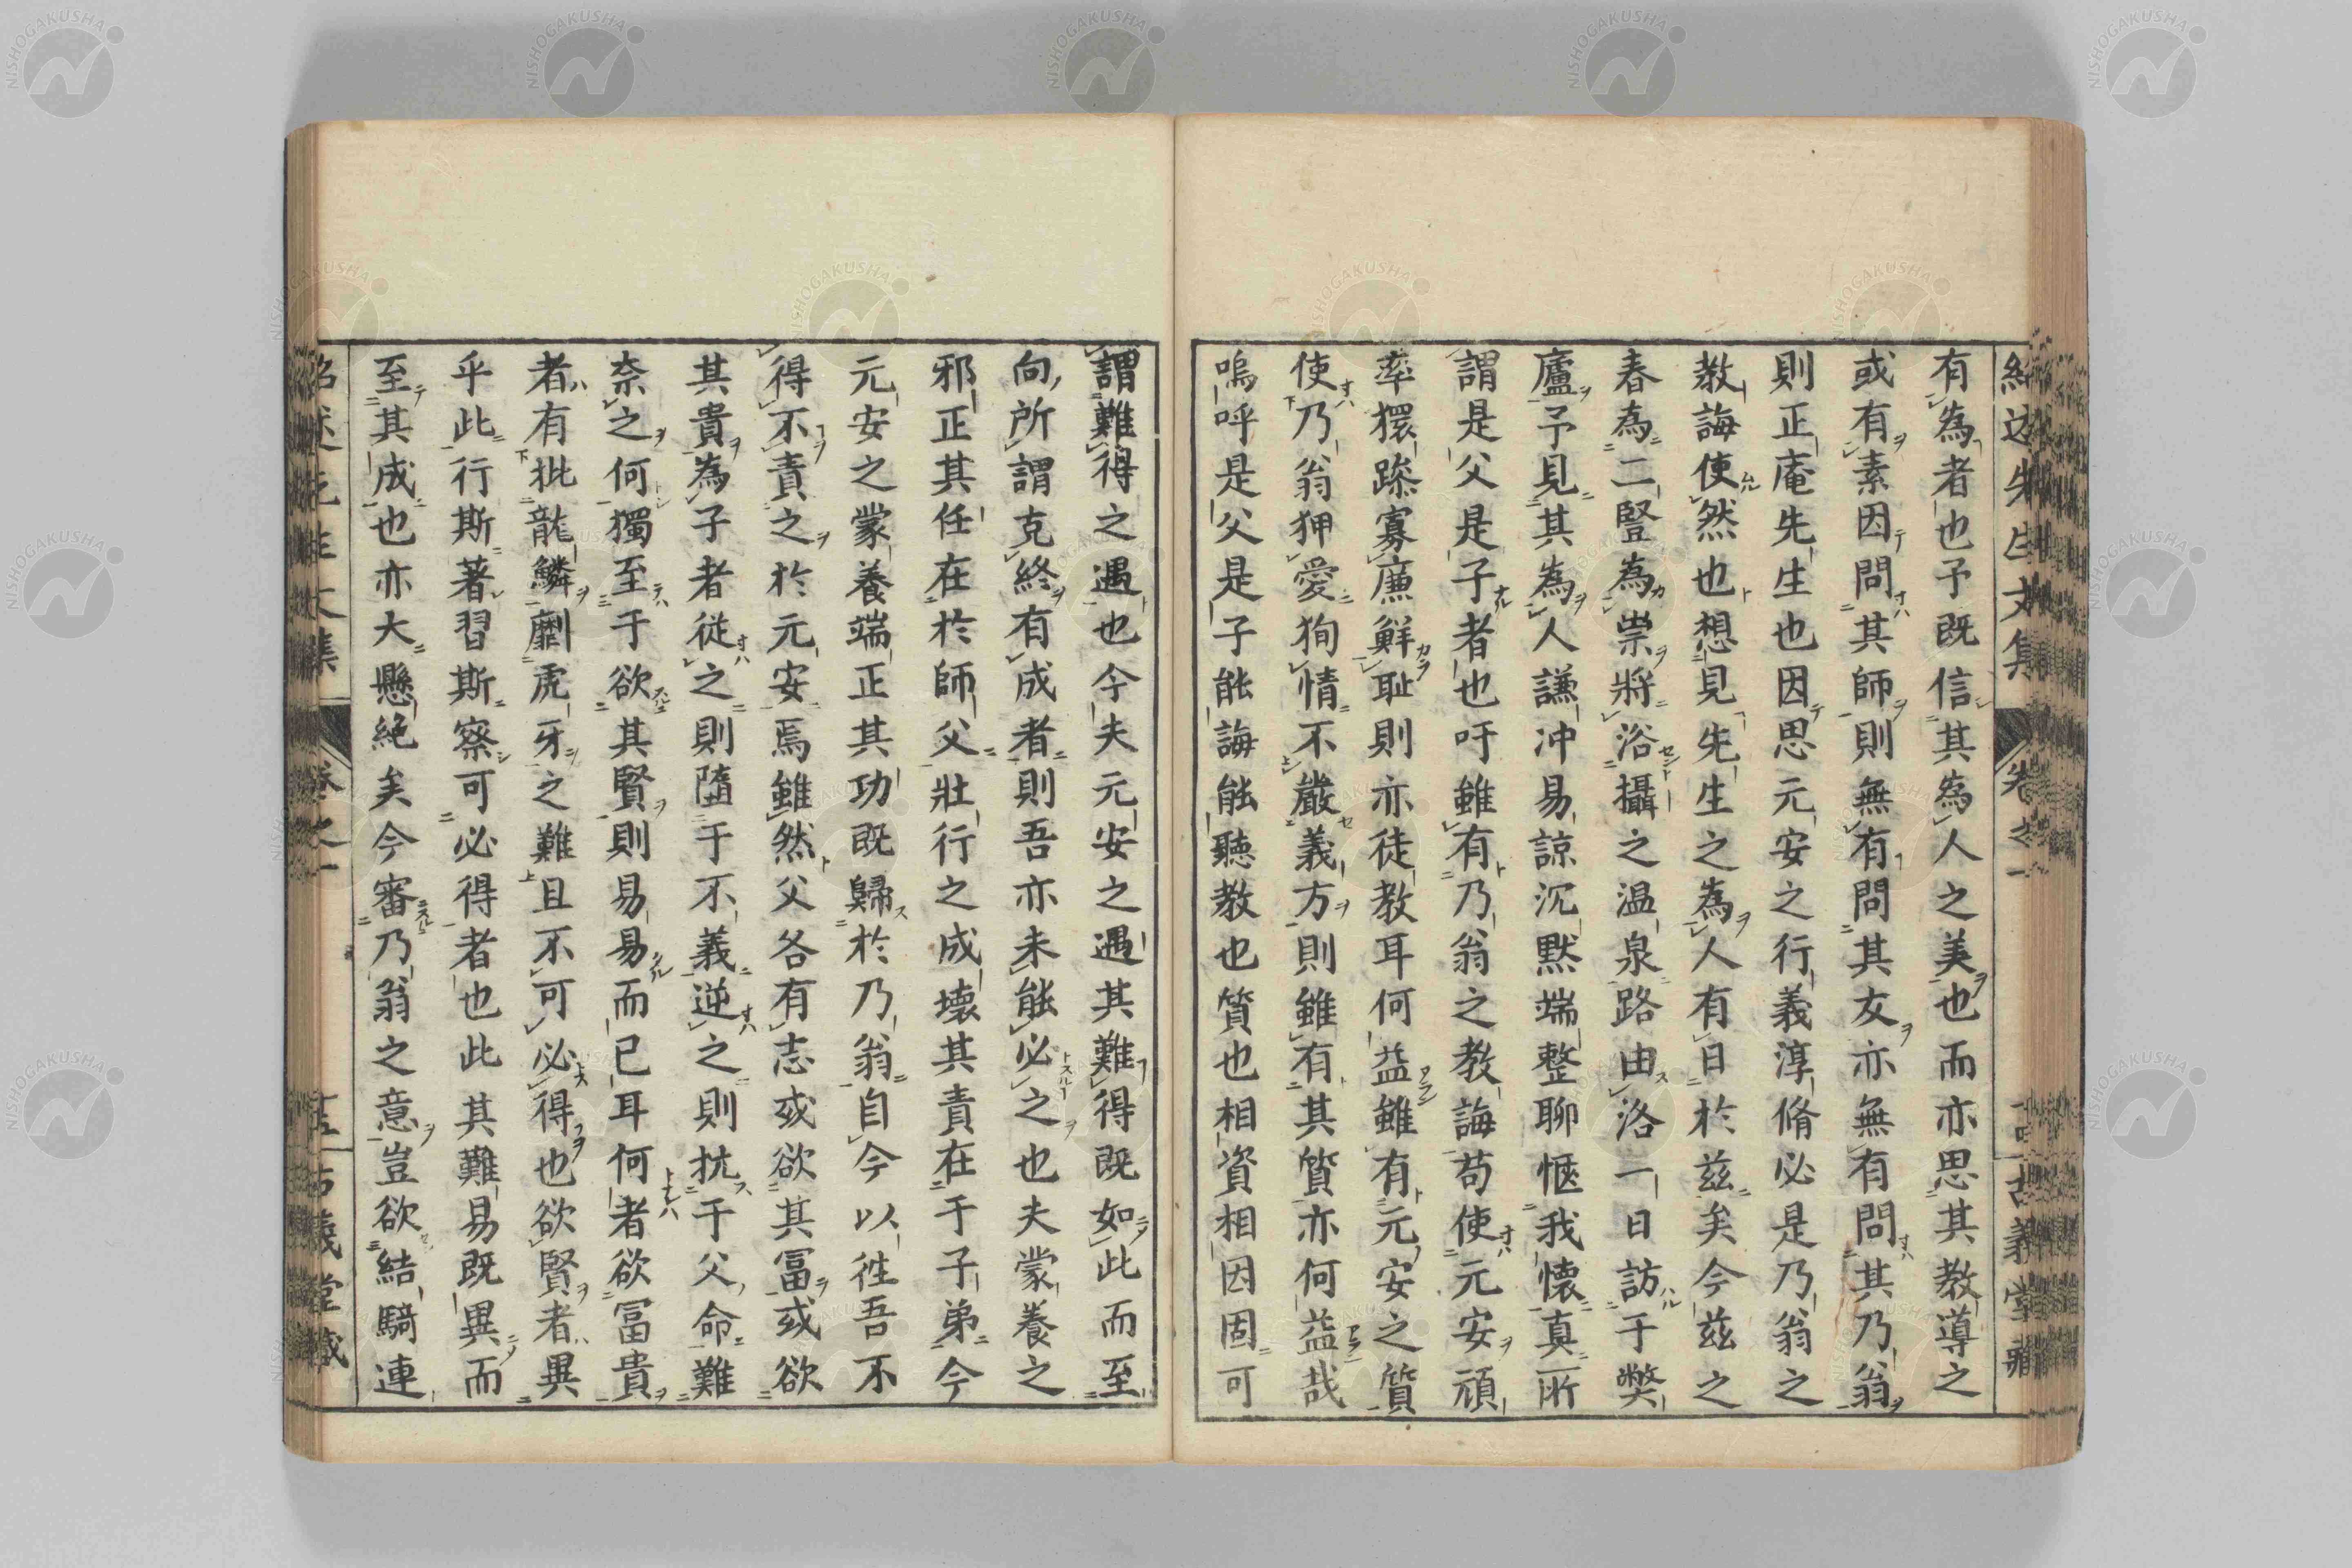 有為者也予既信其為人之美也而亦思其教導之
或有素因問其師則無有問其友亦無有問其乃翁
則正庵先生也因思元安之行義淳脩必是乃翁之
教誨使然也想見先生之為人有日於茲矣今茲之
春為二豎為祟將浴攝之温泉路由洛一日訪于獘
廬予見其為人謙冲易諒沉默端整聊惬我懐真所
謂是父是子者也吁雖有乃翁之教誨苟使元安頑
率獧躁寡廉鮮耻則亦徒教耳何益雖有元安之質
使乃翁狎愛狥情不嚴義方則雖有其質亦何益哉
嗚呼是父是子能誨能聽教也質也相資相因固可
謂難得之遇也今夫元安之遇其難得既如此而至
向所謂克終有成者則吾亦未能必之也夫蒙養之
邪正其任在於師父壯行之成壊其責在于子弟今
元安之蒙養端正其功既歸於乃翁自今以徃吾不
得不責之於元安焉雖然父各有志或欲其冨或欲
其貴為子者從之則隨于不義逆之則抗于父命難
奈之何獨至于欲其賢則易易而已耳何者欲冨貴
者有批龍鱗劘虎牙之難且不可必得也欲賢者異
乎此行斯著習斯察可必得者也此其難易既異而
至其成也亦大懸絶矣今審乃翁之意豈欲結騎連